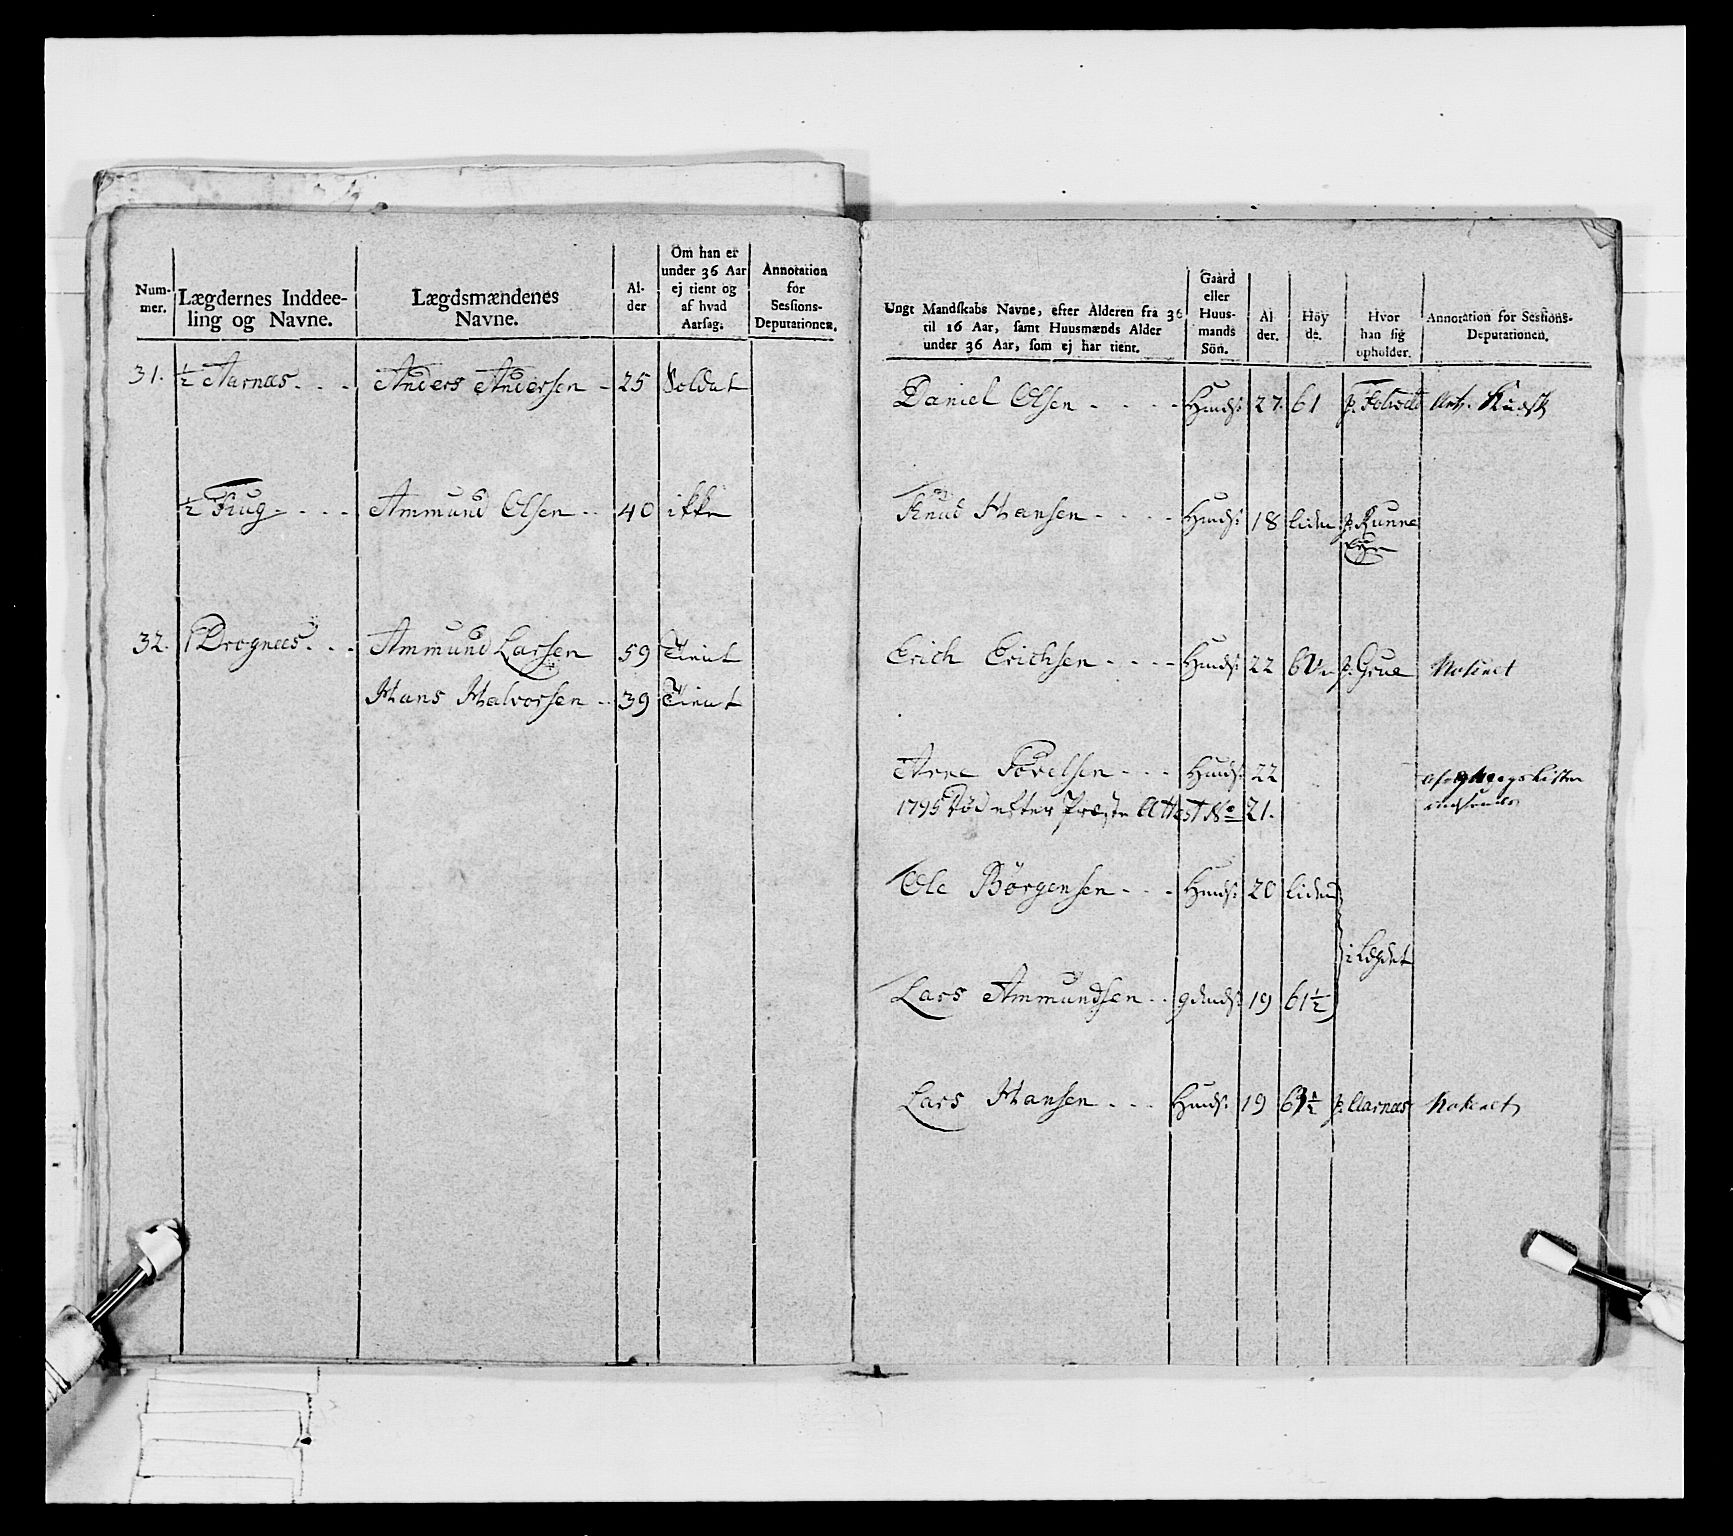 Num-
mer.
Lægdernes Inddee-
ling og Navne.
Lægdsmændenes
Navne.
Al-
der
Om han er
under 36 Aar
ej tient og
af hvad
Aarsag.
Annotation
for
Sessions-
Deputationen.
31. ½ Aarnæs Anders Andersen 25 Soldat
½ Fiug Ammund Olsen 40 ikke
32. 1 Drognæs Ammund Larsen 59 Tient
Hans Halvorsen 39 Tient
Ungt Mandskabs Navne, efter Alderen fra 36
til 16 Aar, samt Huusmænds Alder
under 36 Aar, som ej har tient.
Gaard
eller
Huus-
mands
Sön.
Al
der.
Höy
de.
Hvor
han sig
opholder.
Annotation for Sessions-
Deputationen.
Daniel Olsen Hmds: 27. 61 Kudsk
Knud Hansen Hmds: 18 liden p. Runne
Eyer
Erich Erichsen Hmds: 22 p. Grue Noteret
Arne Hmds: 22
1795 Död efter Præste Attest No 21.
Ole Börgensen Hmds: 20 liden
i Legdet
Lars Ammundsen gdmds: 19 61½
Lars Hansen Hmds: 19 p. Aarnæs Noteret